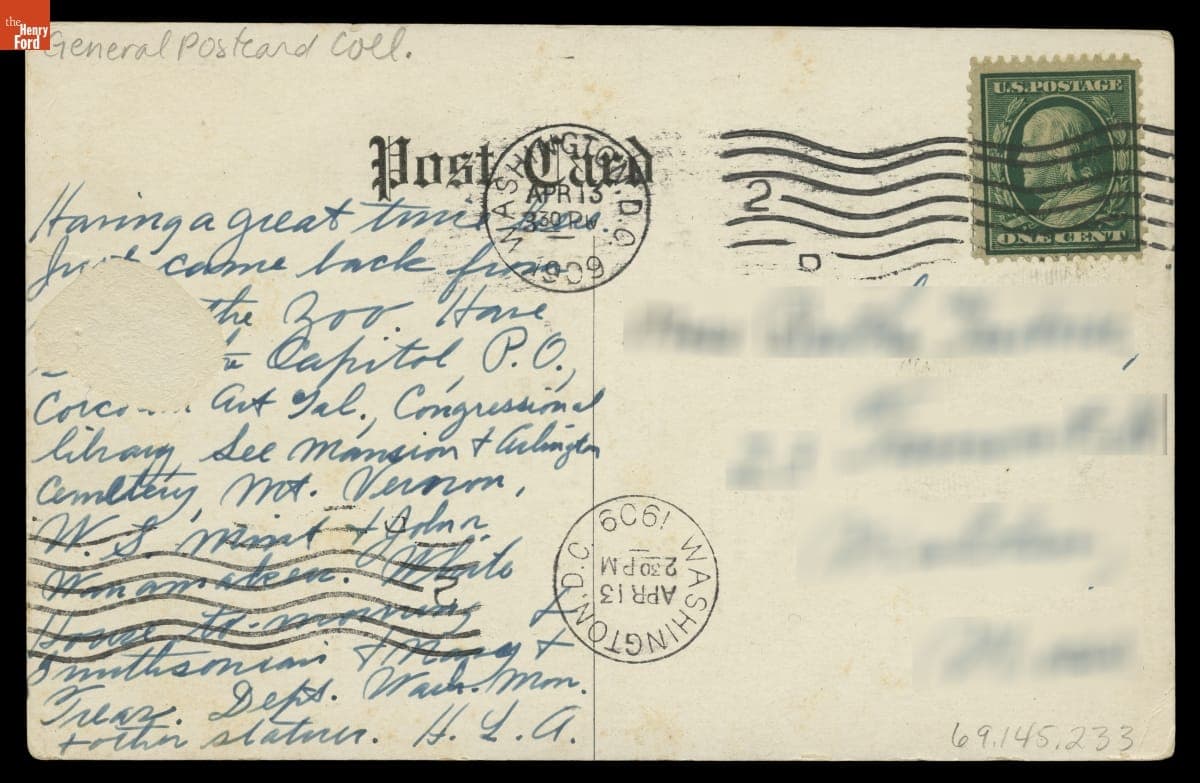 the
Henry
Ford
General Postcard Coll.
Post Card
WASHINGTON, D.C.
APR 13
3 30 P.M.
1909
2
D
U.S. POSTAGE
ONE CENT
Having a great time
Just came back from
the Zoo Have
Capitol, P.O.,
Art Gal., Congressional
library, See Mansion & Arlington
Cemetery, Mt. Vernon,
U. S. Mint & John
Wanamaker. White
House to-morning &
Smithsonian & Navy &
Treas. Depts. Wash. Mon.
& other statues. H. L. A.
WASHINGTON, D.C.
APR 13
2 30 P M
1909
69.145.233